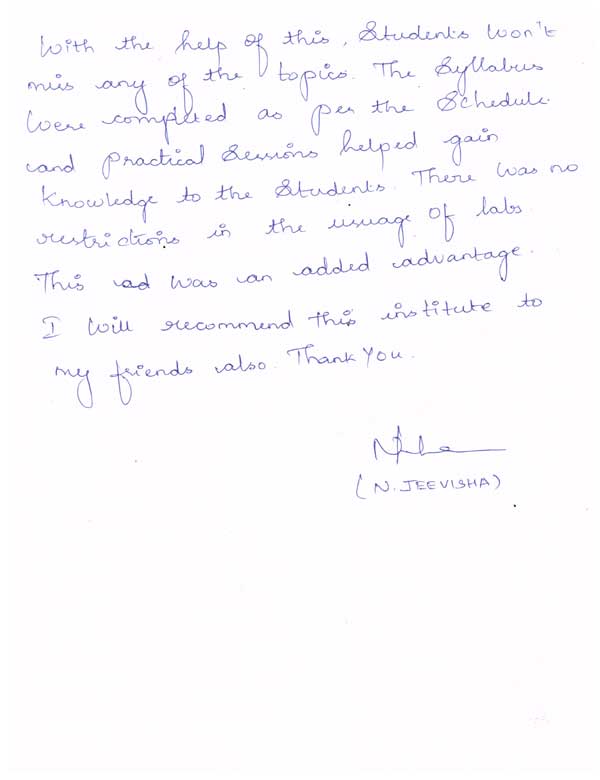 With the help of this, Students won't
miss any of the topics. The Syllabus
Were completed as per the Schedule
and practical Sessions helped gain
Knowledge to the Students. There was no
restrictions in the usuage of labs.
This ad was an added advantage.
I Will recommend this institute to
my friends also. Thank You.
(N. JEEVISHA)